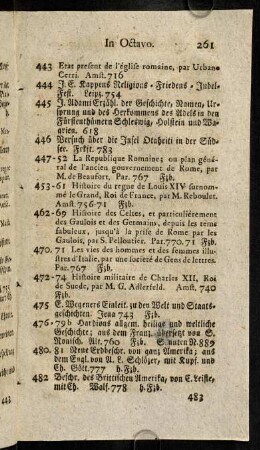 In Octavo. 261
443 Etat present de l'église romaine, par Urban
Cerri. Amst. 716
444 J. E. Kappens Religions- Friedens- Jubel-
Fest. Leipz. 754
445 J. Adami Erzähl. der Geschichte, Namen, Ur-
sprung und des Herkommens des Adels in den
Fürstenthümern Schleswig, Holstein und Wa-
grien. 618
446 Versuch über die Insel Otaheite in der Süd-
see. Frkft. 783
447-52 La Republique Romaine; ou plan géné-
ral de l'ancien gouvernement de Rome, par
M. de Beaufort, Par. 767 Fzb.
453-61 Histoire du regne de Louis XIV surnom-
mé le Grand, Roi de France, par M. Reboulet.
Amst 756-71 Fzb.
462-69 Histoire des Celtes, et particuliérement
des Gaulois et des Germains, depuis les tems
fabuleux, jusqu'à la prise de Rome par les
Gaulois, par S. Pelloutier. Par. 770. 71 Fzb.
470. 71 Les vies des hommes et des femmes illus-
tres d'Italie, par une societé de Gens de lettres.
Par. 767 Fzb.
472-74 Histoire militaire de Charles XII, Roi
de Suede, par M. G. Adlerfeld. Amst. 740
Fzb.
475 E. Wegeners Einleit. zu den Welt und Staats-
geschichten. Jena 743 Fzb.
476-79b Hardions allgem. heilige und weltliche
Geschichte; aus dem Franz. übersetzt von S.
Nonisch. Alt. 760 Fzb. S. unten N. 889
480. 81 Neue Erdbeschr. von ganz Amerika; aus
dem Engl. von A. L. Schlözer, mit Kupf. und
Ch. Gött. 777 h. Fzb.
482 Beschr. des Brittischen Amerika, von C. Leiste,
mit Ch. Wolf. 778 h. Fzb.
483